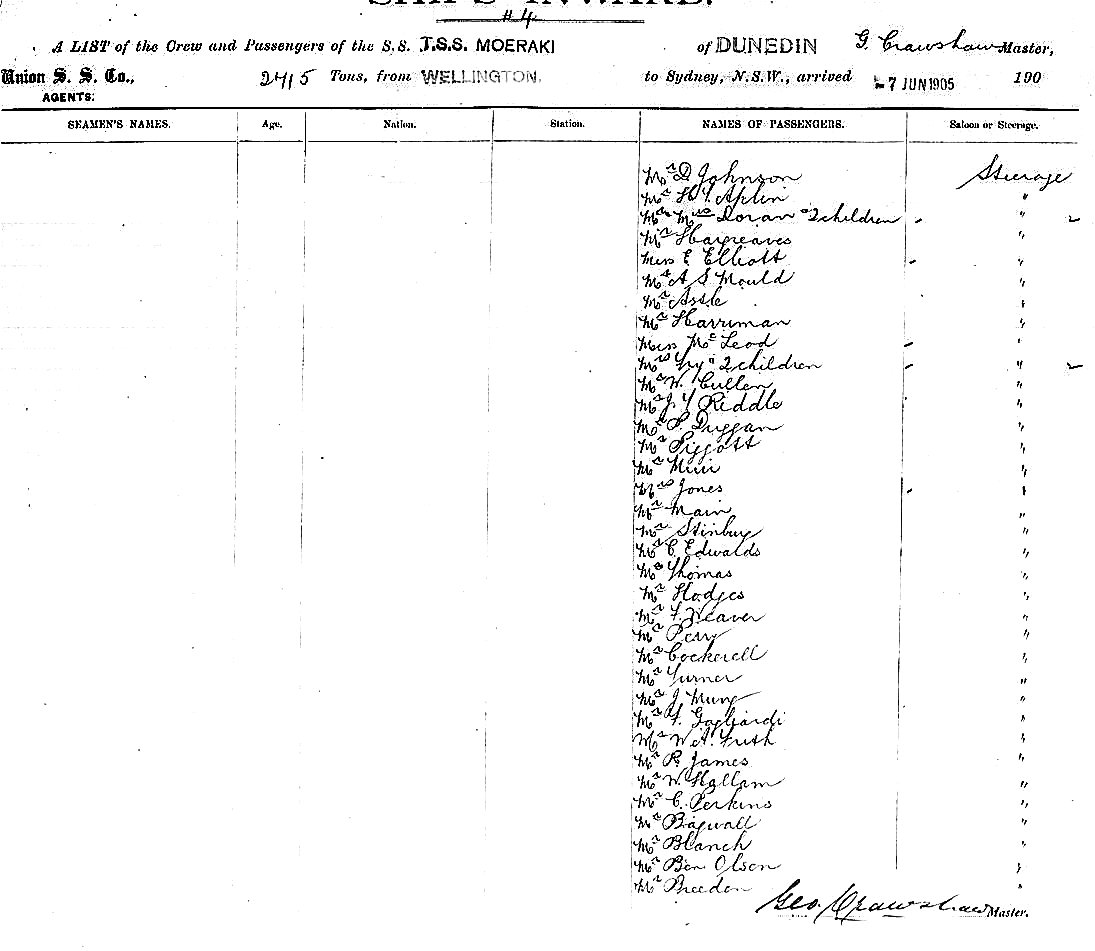 SHIPS INWARD.
#4
A LIST of the Crew and Passengers of the S.S. T.S.S. MOERAKI of DUNEDIN G. Crawshaw Master,
Union S. S. Co., 2415 Tons, from WELLINGTON. to Sydney, N.S.W., arrived 7 JUN 1905 190
AGENTS.
SEAMEN'S NAMES. Age. Nation. Station. NAMES OF PASSENGERS. Saloon or Steerage.
Mr D Johnson Steerage
Mr H Y Aplin "
Mr Mrs Doran " 2 children "
Mr Hargreaves "
Miss E Elliott "
Mr A S Mould "
Mr Astle "
Mr Harriman "
Miss McLeod "
Mrs " 2 children "
Mr W. Cullen "
Mr J. Y Riddle "
Mr P. Duggan "
Mr Piggott "
Mr Muir "
Mrs Jones "
Mr Main "
Mr "
Mr C. Edwalds "
Mr Thomas "
Mr Hodges "
Mr F. Weaver "
Mr Perry "
Mr Cockerell "
Mr Turner "
Mr J "
Mr F. Gagliardi "
Mr W A. Frith "
Mr R. James "
Mr W. Hallam "
Mr C. Perkins "
Mr Bagwall "
Mr Blanch "
Mr Ben Olsen "
Mr Breedon "
Geo. Crawshaw Master.